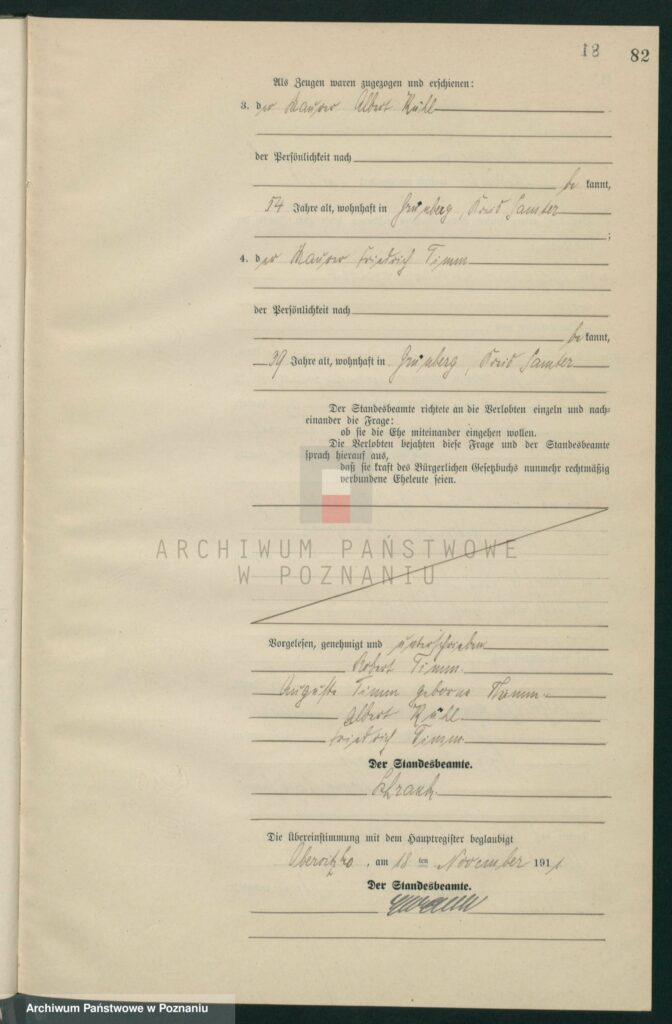 18 82
Als Zeugen waren zugezogen und erschienen:
3. der Maurer Albert Kühl
der Persönlichkeit nach
be kannt,
54 Jahre alt, wohnhaft in Grünberg, Kreis Samter
;
4. der Maurer Friedrich Timm
der Persönlichkeit nach
be kannt,
39 Jahre alt, wohnhaft in Grünberg, Kreis Samter
Der Standesbeamte richtete an die Verlobten einzeln und nach-
einander die Frage:
ob sie die Ehe miteinander eingehen wollen.
Die Verlobten bejahten diese Frage und der Standesbeamte
sprach hierauf aus,
daß sie kraft des Bürgerlichen Gesetzbuchs nunmehr rechtmäßig
verbundene Eheleute seien.
ARCHIWUM PAŃSTWOWE
W POZNANIU
Vorgelesen, genehmigt und unterschrieben
Robert Timm.
Auguste Timm geborne
Albert Kühl
Friedrich Timm
Der Standesbeamte.
Die Übereinstimmung mit dem Hauptregister beglaubigt
Obersitzko, am 18 ten November 1911
Der Standesbeamte.
Archiwum Państwowe w Poznaniu